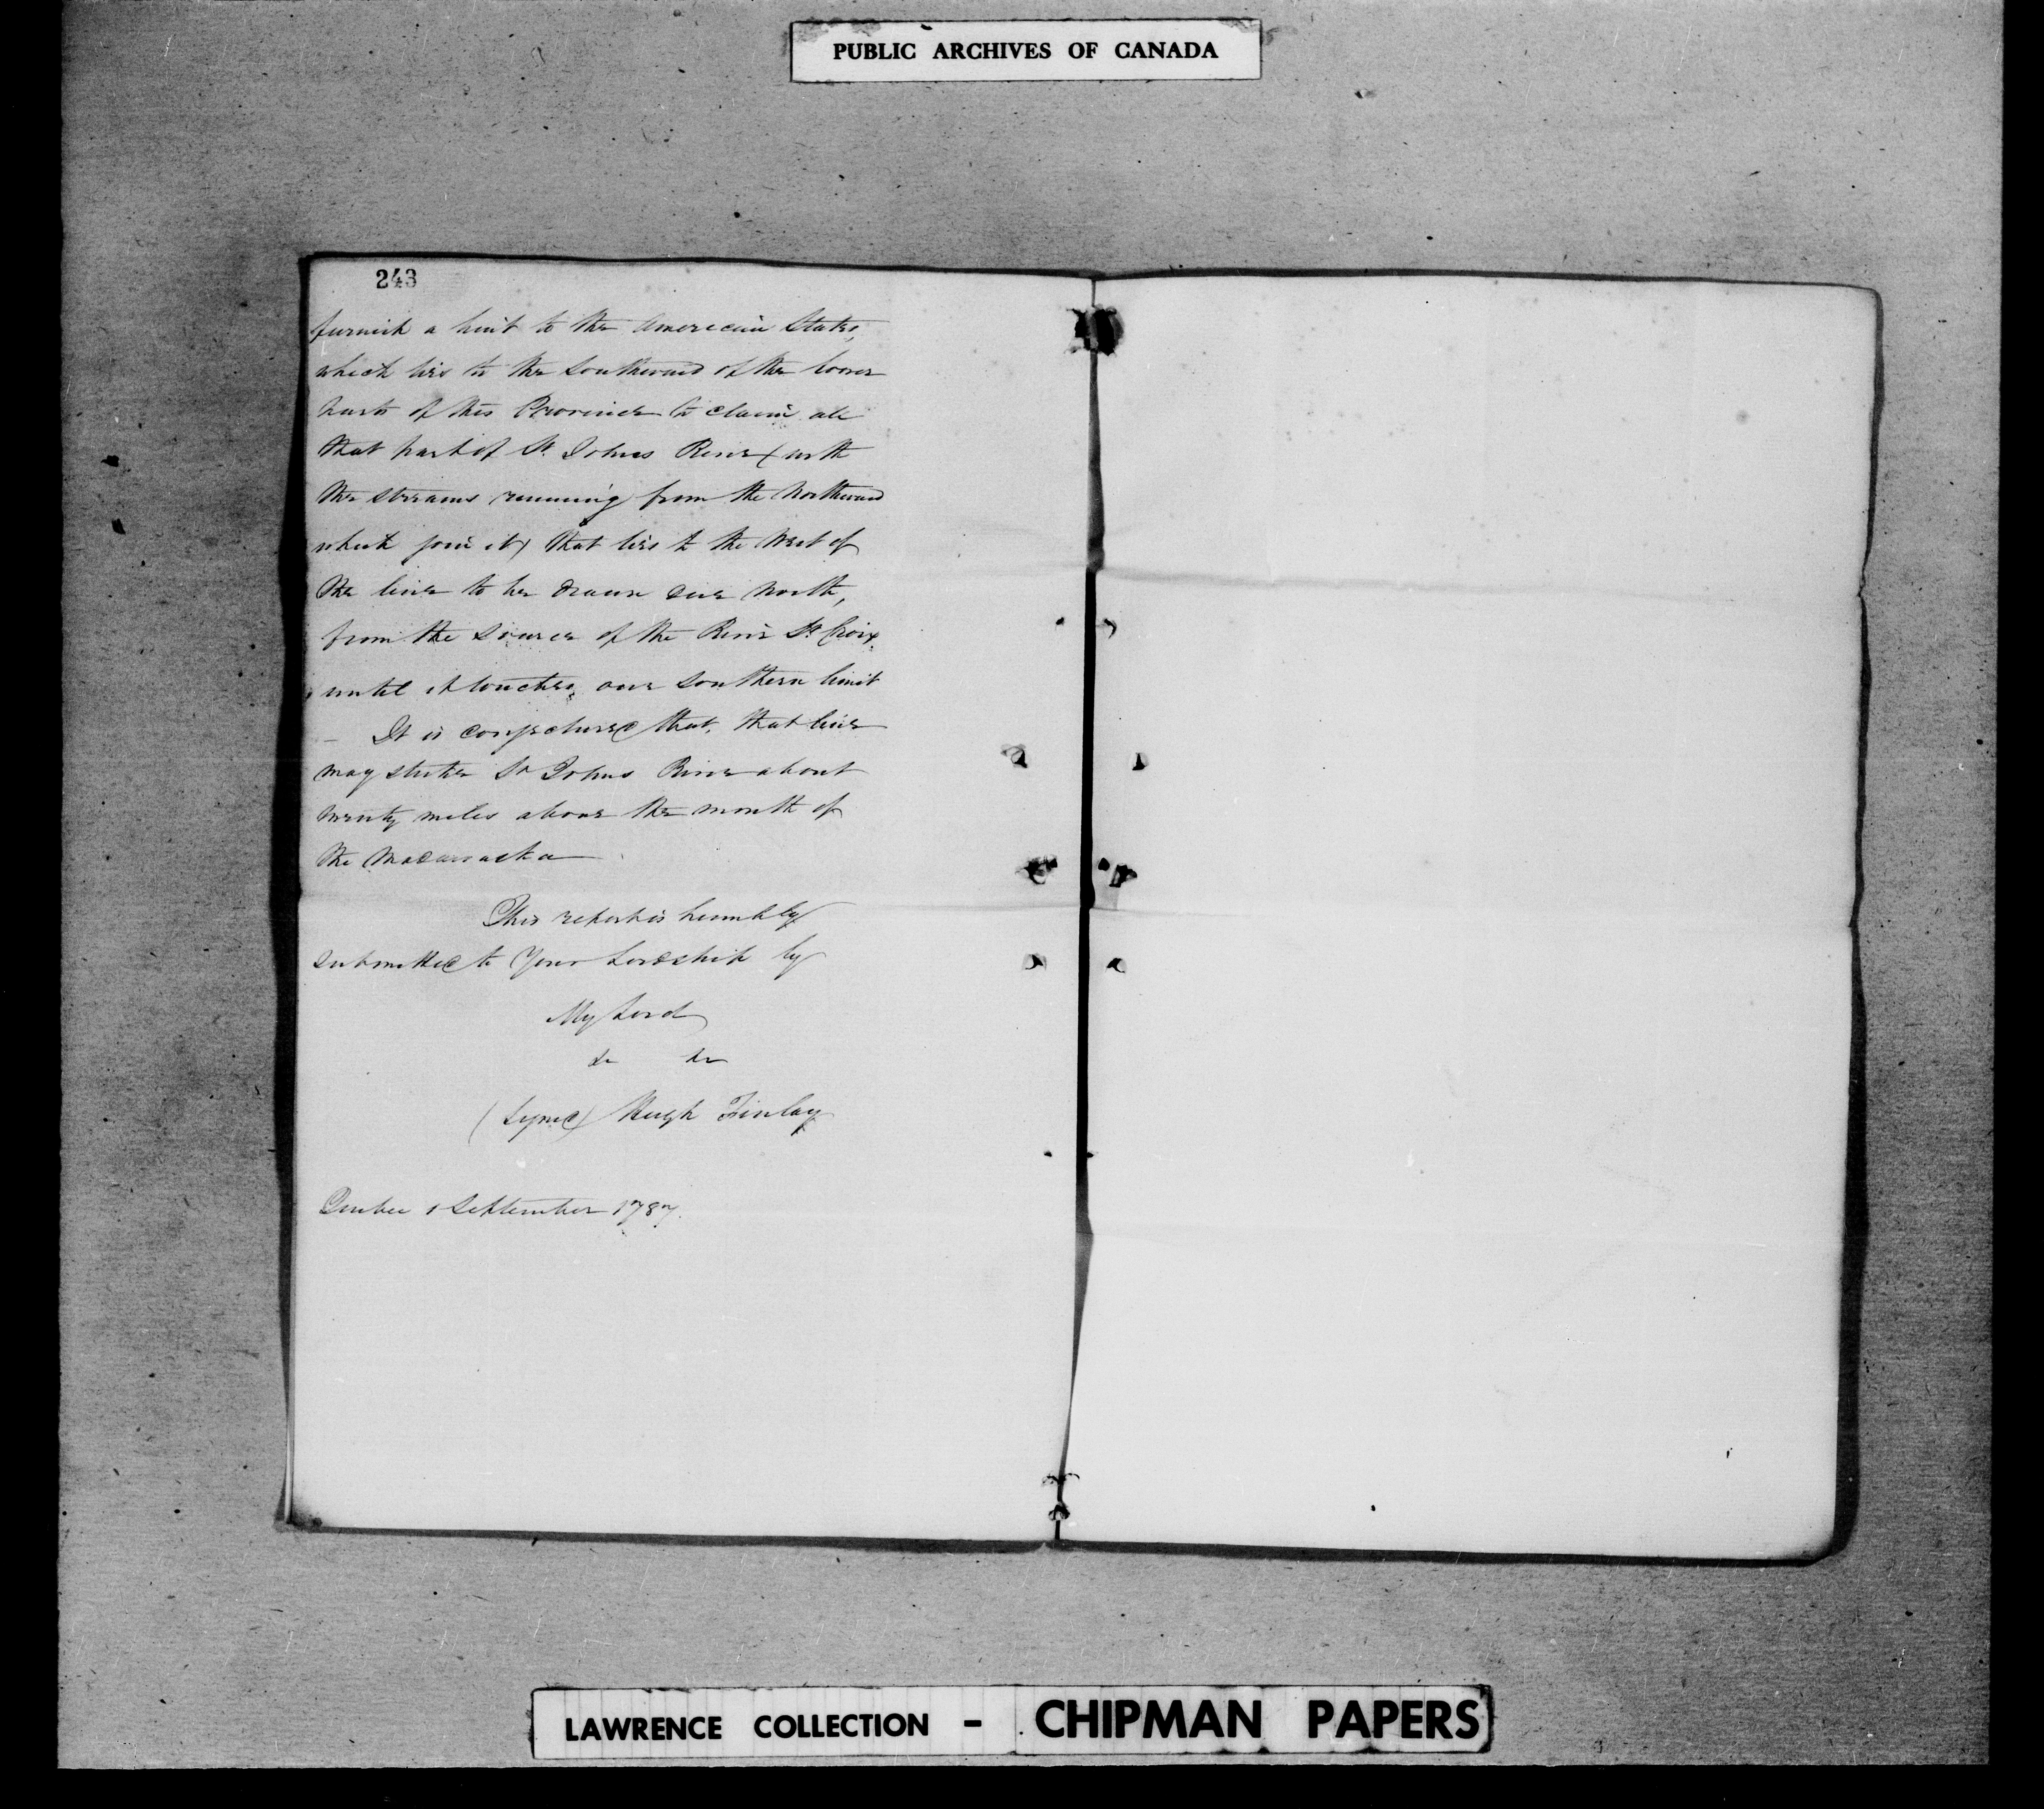 PUBLIC ARCHIVES OF CANADA
243
furnish a hint to the American States,
which lies to the Southward of the lower
parts of this Province to claim all
that part of St. Johns River (with
the streams running from the Northward
which join it) that lies to the West of
the line to be drawn due North,
from the source of the River St. Croix
until it touches our Southern limit
— It is conjectured that, that line
may strike St Johns River about
twenty miles above the mouth of
the Madawaska
This report is humbly
submitted to Your Lordship by
My Lord
&c &c
(Signed) Hugh Finlay
Quebec 1 September 1787.
LAWRENCE COLLECTION - CHIPMAN PAPERS